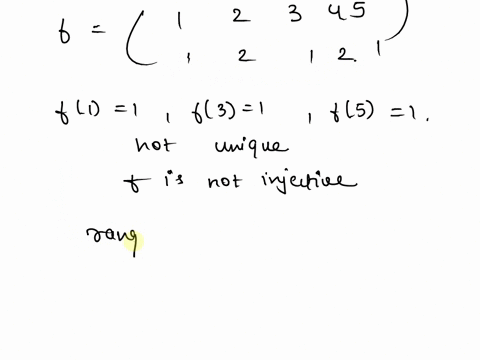 f = ( 1 2 3 4 5
1 2 1 2. 1 )
f(1) = 1 , f(3) = 1 , f(5) = 1.
not unique
f is not injective
rang